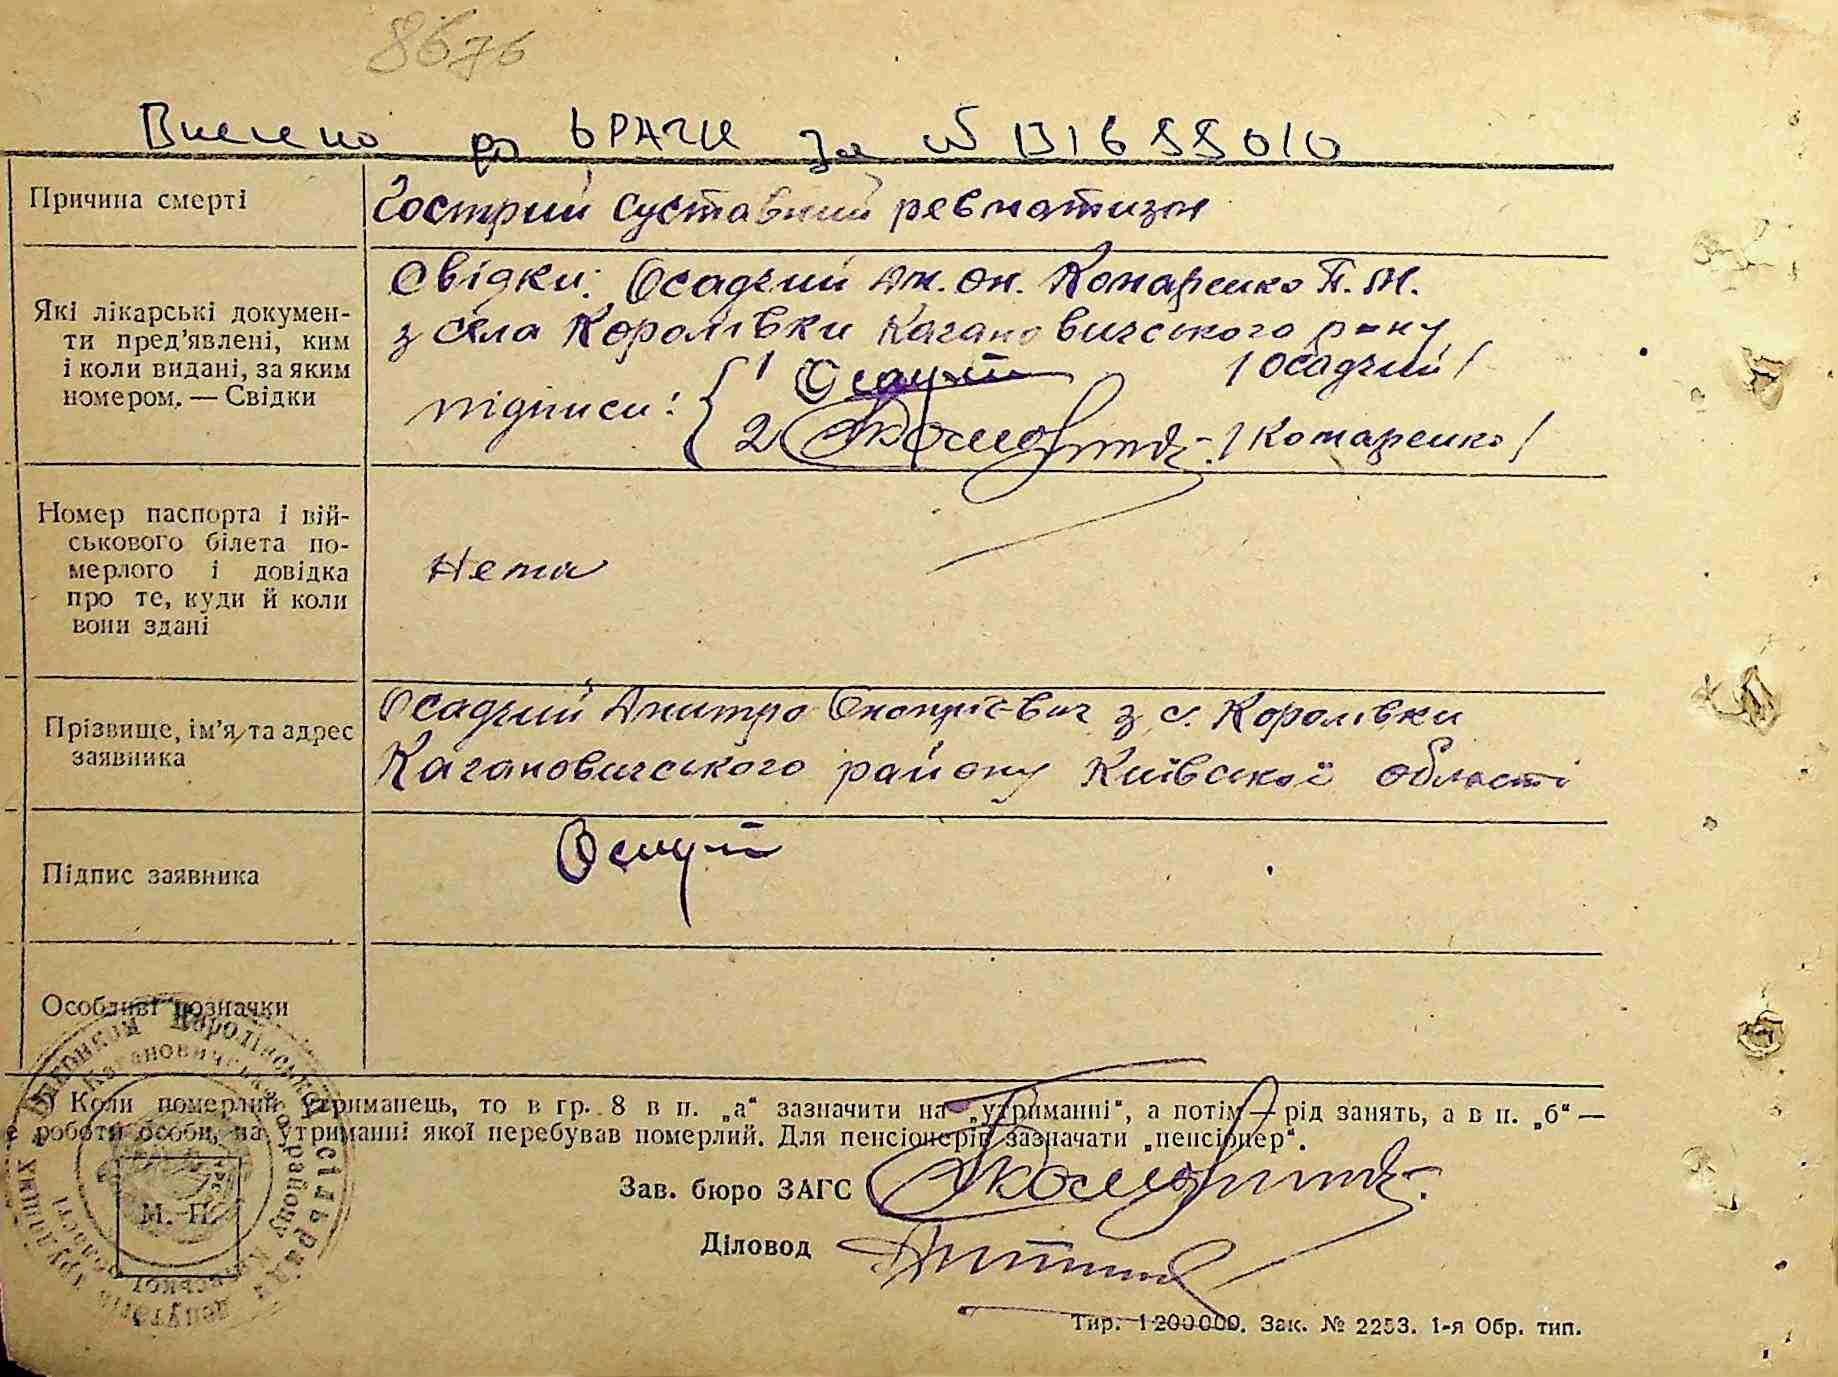 8676
Внесено до ВРАЦС за № 131655010
Причина смерті
Гострий суставний ревматизм
Які лікарські докумен-
ти пред'явлені, ким
і коли видані, за яким
номером. — Свідки
Свідки: Осадчий Дм. Он. Комаренко П. М.
з села Королівки Кагановичського р-ну
підписи: 1 /Осадчий/
2 /Комаренко/
Номер паспорта і вій-
ськового білета по-
мерлого і довідка
про те, куди й коли
вони здані
Нема
Прізвище, ім'я, та адрес
заявника
Осадчий Дмитро Онопрієвич з с. Королівки
Кагановичського району Київської області
Підпис заявника
Особливі позначки
Коли померлий утриманець, то в гр. 8 в п. „а“ зазначити на „утриманні“, а потім — рід занять, а в п. „б“ —
роботи особи, на утриманні якої перебував померлий. Для пенсіонерів зазначати „пенсіонер“.
Зав. бюро ЗАГС
М. П.
Діловод
Тир. 1200000. Зак. № 2253. 1-я Обр. тип.